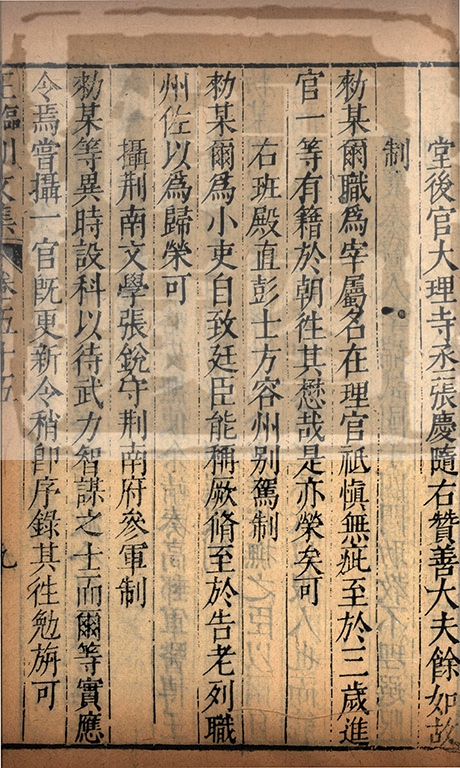 堂後官大理寺丞張慶隨右贊善大夫餘如故
制
勑某爾職爲宰屬名在理官祇愼無疵至於三歲進
官一等有籍於朝徃其懋哉是亦榮矣可
右班殿直彭士方容州别駕制
勑某爾爲小吏自致廷臣能稱厥脩至於告老列職
州佐以爲歸榮可
攝荆南文學張銳守荆南府參軍制
勑某等異時設科以待武力智謀之士而爾等實應
令焉嘗攝一官旣更新令稍卽序錄其徃勉旃可
王臨川文集 卷五十五 九